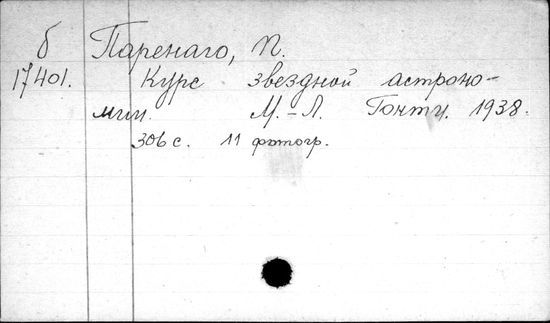 б Паренаго, П.
17401. Курс звездной астроно-
мии. М.-Л. Гонти. 1938.
306 с. 11 фотогр.